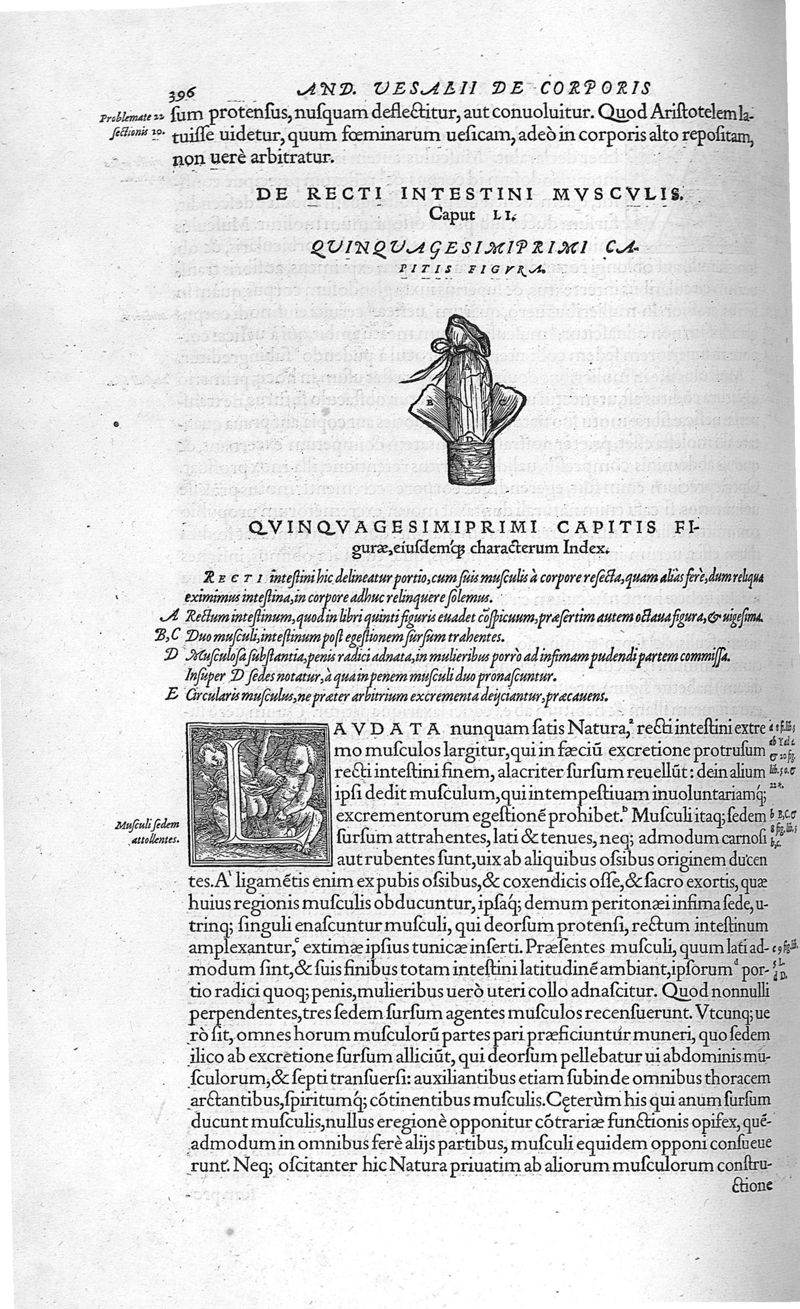 396 AND. VESALII DE CORPORIS
Problemate 22 ſum protenſus, nuſquam deflectitur, aut conuoluitur. Quod Ariſtotelem la-
ſectionis 10. tuiſſe uidetur, quum fœminarum ueſicam, adeò in corporis alto repoſitam,
non uerè arbitratur.
DE RECTI INTESTINI MVSCVLIS.
Caput LI.
QVINQVAGESIMIPRIMI CA-
PITIS FIGVRA.
A
B C
D
E
QVINQVAGESIMIPRIMI CAPITIS FI-
guræ, eiuſdemq́; characterum Index.
RECTI inteſtini hic delineatur portio, cum ſuis muſculis à corpore reſecta, quam aliàs ferè, dum reliqua
eximimus inteſtina, in corpore adhuc relinquere ſolemus.
A Rectum inteſtinum, quod in libri quinti figuris euadet cõſpicuum, præſertim autem octaua figura, & uigeſima.
B, C Duo muſculi, inteſtinum poſt egeſtionem ſurſum trahentes.
D Muſculoſa ſubſtantia, penis radici adnata, in mulieribus porrò ad infimam pudendi partem commiſſa.
Inſuper D ſedes notatur, à qua in penem muſculi duo pronaſcuntur.
E Circularis muſculus, ne præter arbitrium excrementa deijciantur, præcauens.
LAVDATA nunquam ſatis Natura,ᵃ recti inteſtini extre
mo muſculos largitur, qui in fæciũ excretione protruſum
recti inteſtini finem, alacriter ſurſum reuellũt: dein alium
ipſi dedit muſculum, qui intempeſtiuam inuoluntariamq́;
excrementorum egeſtionẽ prohibet.ᵇ Muſculi itaq; ſedem b B, C
Muſculi ſedem attollentes. ſurſum attrahentes, lati & tenues, neq; admodum carnoſi
aut rubentes ſunt, uix ab aliquibus oſsibus originem ducen
tes. A' ligamẽtis enim ex pubis oſsibus, & coxendicis oſſe, & ſacro exortis, quæ
huius regionis muſculis obducuntur, ipſaq́; demum peritonæi infima ſede, u-
trinq; ſinguli enaſcuntur muſculi, qui deorſum protenſi, rectum inteſtinum
amplexantur,ᶜ extimæ ipſius tunicæ inſerti. Præſentes muſculi, quum lati ad-
modum ſint, & ſuis finibus totam inteſtini latitudinẽ ambiant, ipſorumᵈ por- d D.
tio radici quoq; penis, mulieribus uerò uteri collo adnaſcitur. Quod nonnulli
perpendentes, tres ſedem ſurſum agentes muſculos recenſuerunt. Vtcunq; ue
rò ſit, omnes horum muſculorũ partes pari præficiuntur muneri, quo ſedem
ilico ab excretione ſurſum alliciũt, qui deorſum pellebatur ui abdominis mu-
ſculorum, & ſepti tranſuerſi: auxiliantibus etiam ſubinde omnibus thoracem
arctantibus, ſpiritumq́; cõtinentibus muſculis. Cęterùm his qui anum ſurſum
ducunt muſculis, nullus eregionè opponitur cõtrariæ functionis opifex, quẽ-
admodum in omnibus ferè alijs partibus, muſculi equidem opponi conſueue
runt. Neq; oſcitanter hic Natura priuatim ab aliorum muſculorum conſtru-
ctione